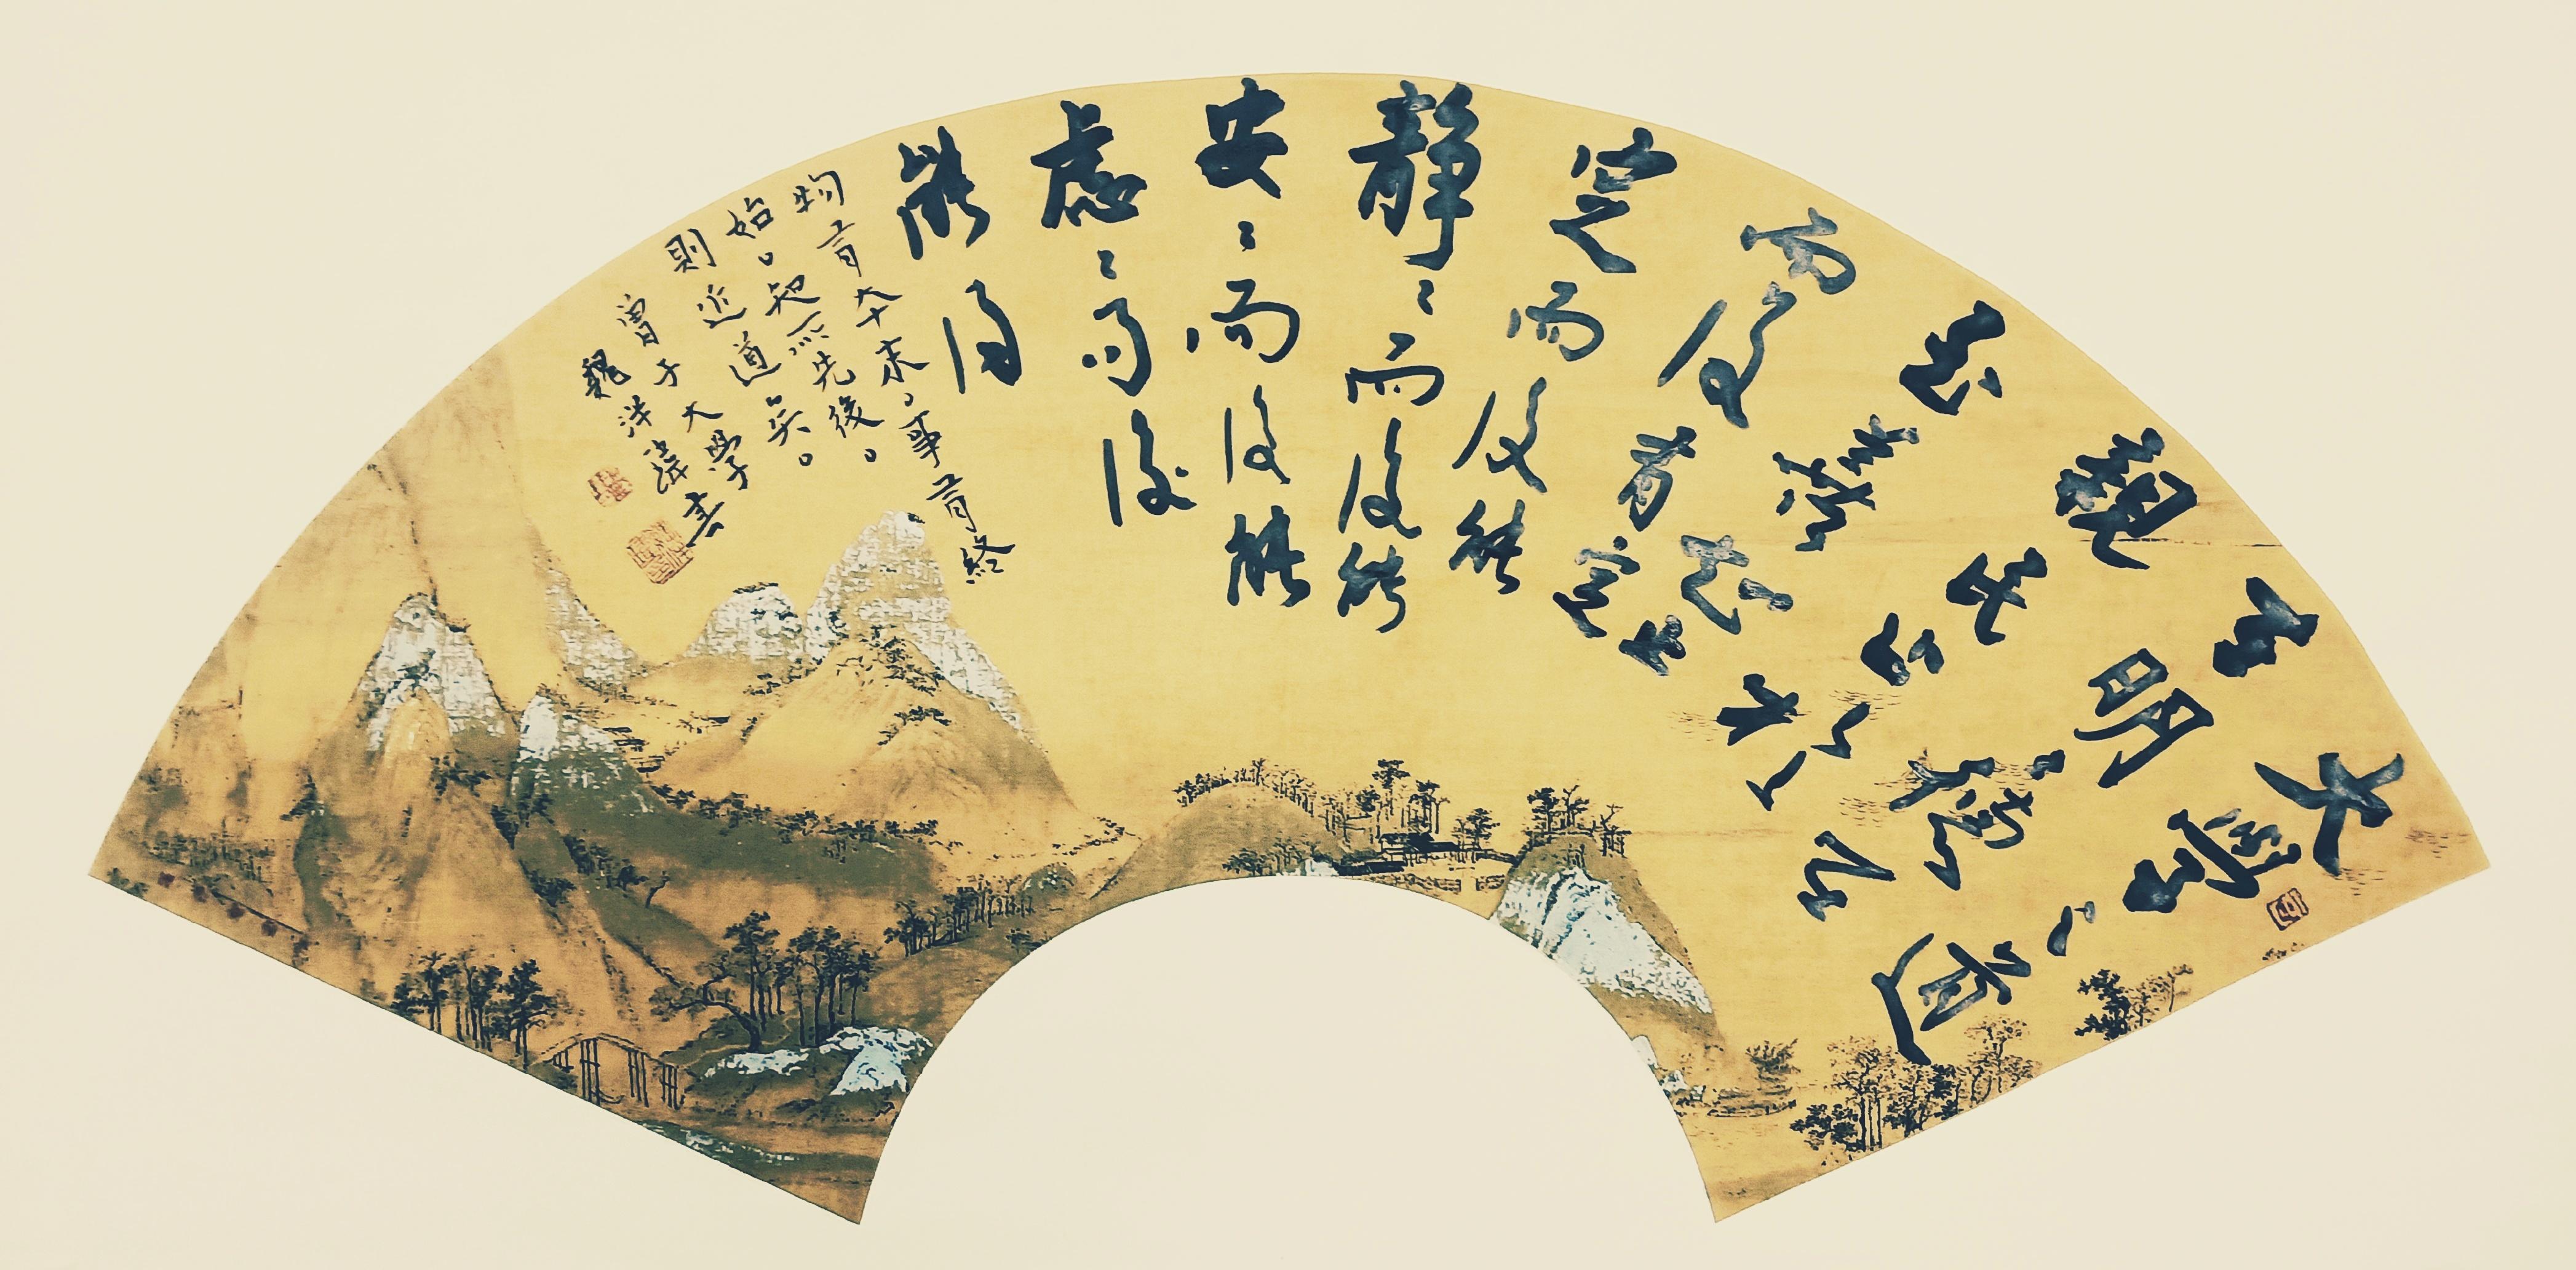 大學之道
在明〻德在
親民在止於
至善知止
而後有定
定而後能
靜〻而後能
安〻而後能
慮〻而後
能得
物有本末、事有終
始。知所先後。
則近道矣。
曾子大學
魏洋 書